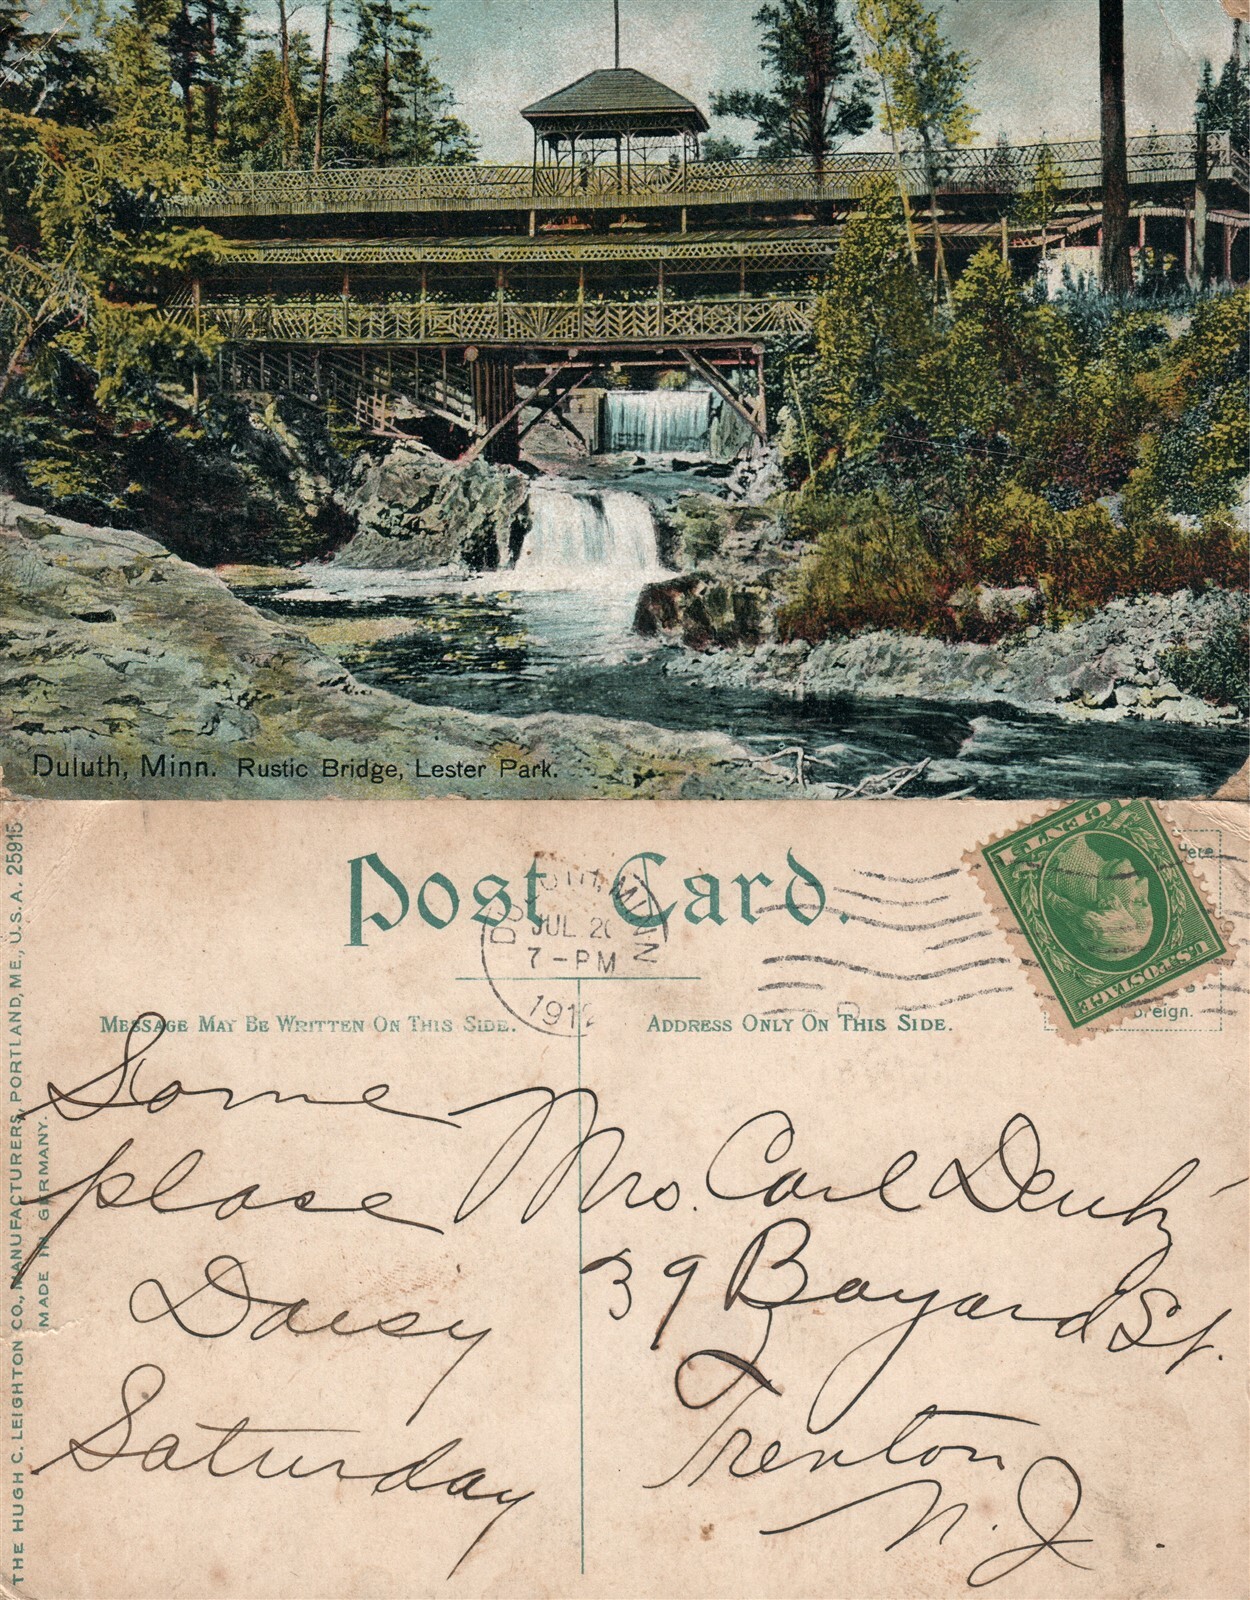 Duluth, Minn. Rustic Bridge, Lester Park.
THE HUGH C. LEIGHTON CO., MANUFACTURERS, PORTLAND, ME., U.S.A. 25915
MADE IN GERMANY.
Post Card.
DULUTH, MINN
JUL 20
7-PM
1912
Here
U.S. POSTAGE
Foreign.
MESSAGE MAY BE WRITTEN ON THIS SIDE.
ADDRESS ONLY ON THIS SIDE.
Some
place
Daisy
Saturday
Mrs. Carl
39 Bayard St.
Trenton
N. J.